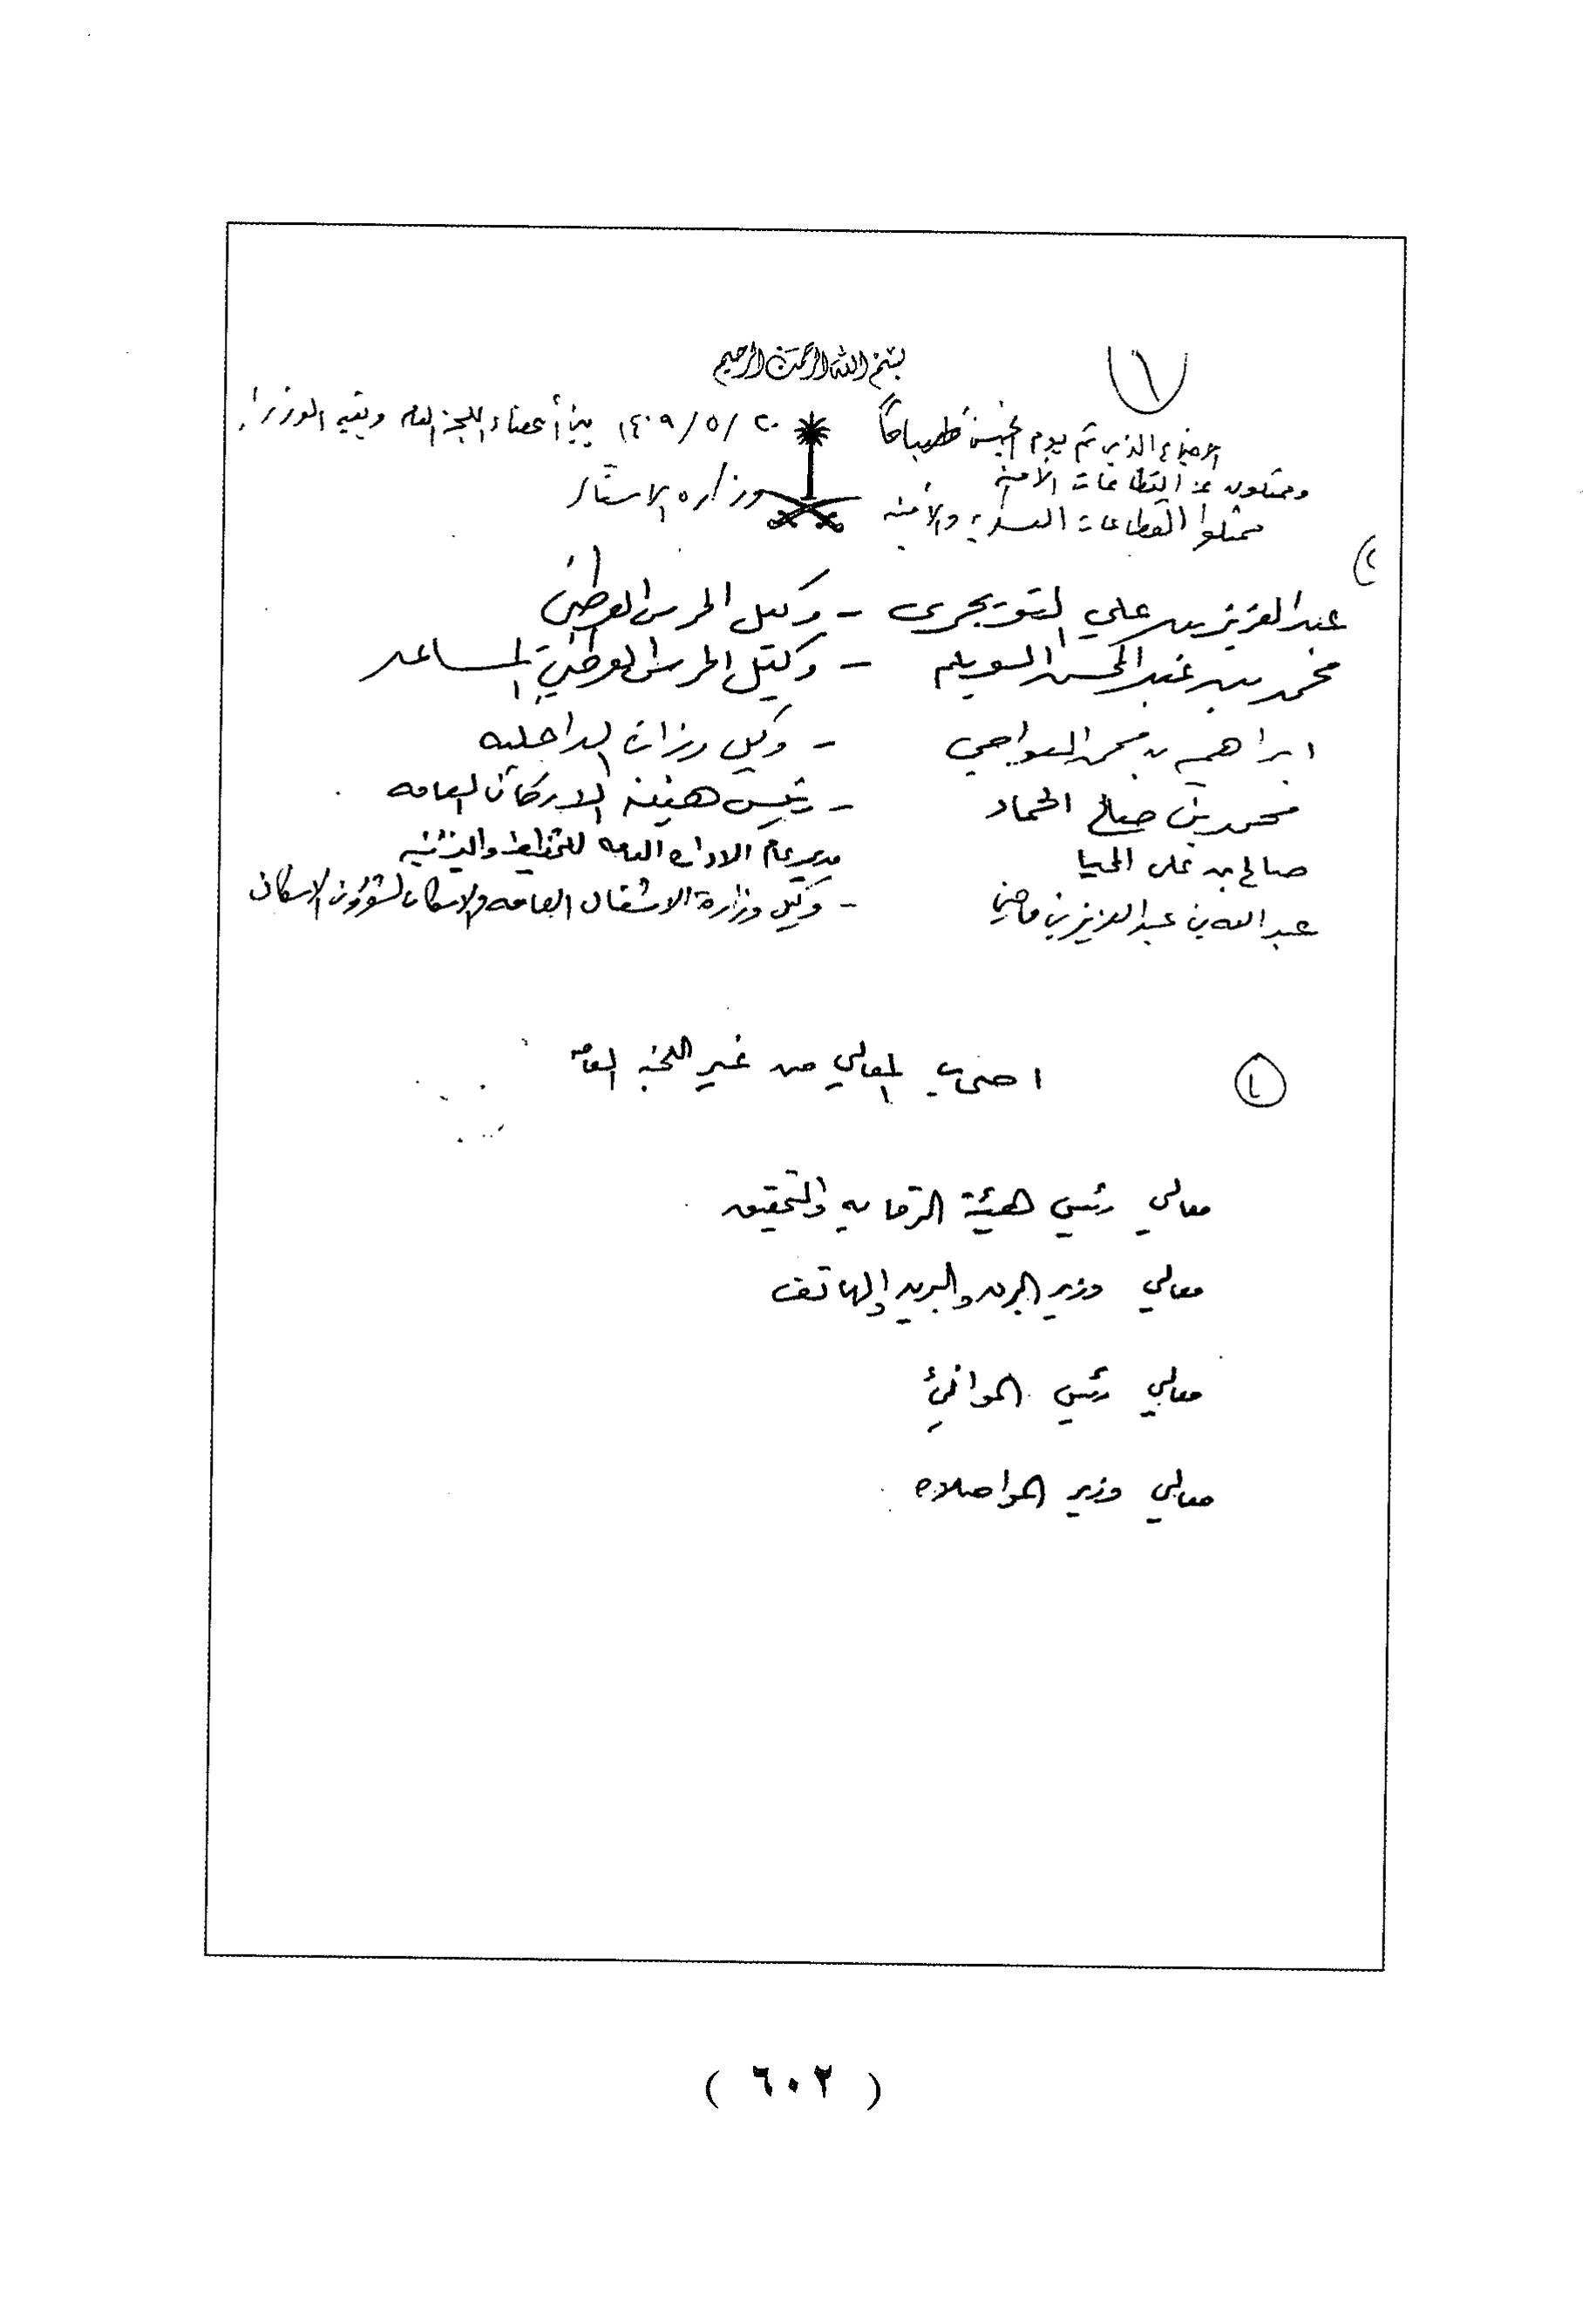 بسم الله الرحمن الرحيم
١
الاجتماع الذي تم يوم الخميس صباحاً ٢٠/٥/١٤٠٩ بين أعضاء اللجنة العامه وبقيه الوزراء
وممثلون عن القطاعات الأمنيه
ممثلوا القطاعات العسكريه والأمنيه وزاره
عبد العزيز بن علي التويجري - وكيل الحرس الوطني
محمد بن عبد المحسن السويلم - وكيل الحرس الوطني المساعد
ابراهيم بن محمد العواجي - وكيل وزارة الداخليه
محمد بن صالح الحماد - رئيس هيئة الاركان العامه
صالح بن علي المحيا مدير عام الاداره العامه للتخطيط والميزانيه
عبد الله بن عبد العزيز بن ماضي - وكيل وزارة الاشغال العامه والاسكان لشؤون الاسكان
اصحاب المعالي من غير اللجنة العامه
معالي رئيس هيئة الرقابه والتحقيق
معالي وزير البرق والبريد والهاتف
معالي رئيس الموانئ
معالي وزير المواصلات
( ٦٠٢ )